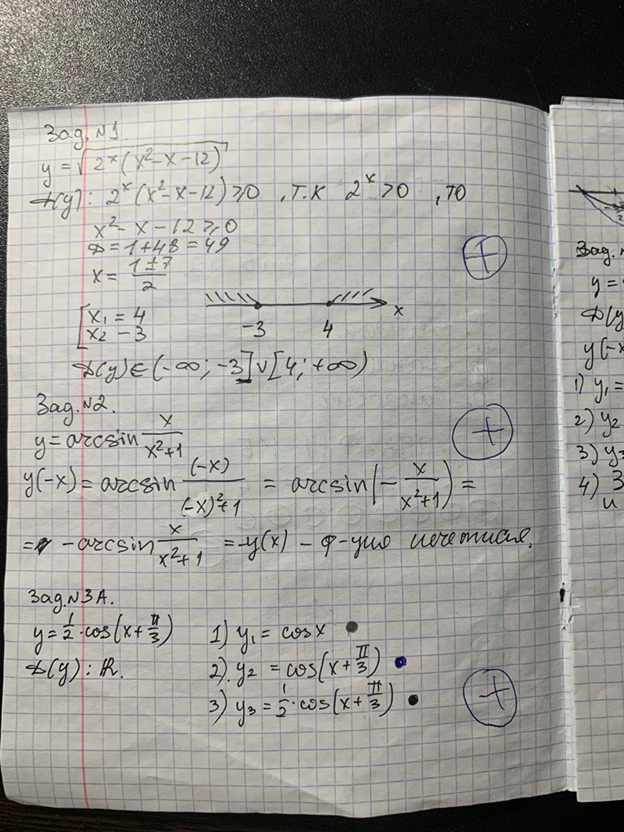 Зад. №1
y = √(2ˣ(x²-x-12))
D(y): 2ˣ(x²-x-12) ≥ 0 , т.к 2ˣ > 0 , то
x² - x - 12 ≥ 0
D = 1+48 = 49
x = (1±7)/2
[x₁ = 4
x₂ - 3
-3 4 x
D(y) ∈ (-∞; -3] ∪ [4; +∞)
+
Зад. №2.
y = arcsin x/(x²+1)
y(-x) = arcsin (-x)/((-x)²+1) = arcsin(- x/(x²+1)) =
= - arcsin x/(x²+1) = -y(x) – ф-ция нечетная.
+
Зад. №3А.
y = 1/2 · cos(x + π/3)
D(y): ℝ.
1) y₁ = cosx
2). y₂ = cos(x + π/3)
3) y₃ = 1/2 · cos(x + π/3)
+
Зад.
y =
D(y
y(-x
1) y₁ =
2) y₂
3) y₃
4) З
и